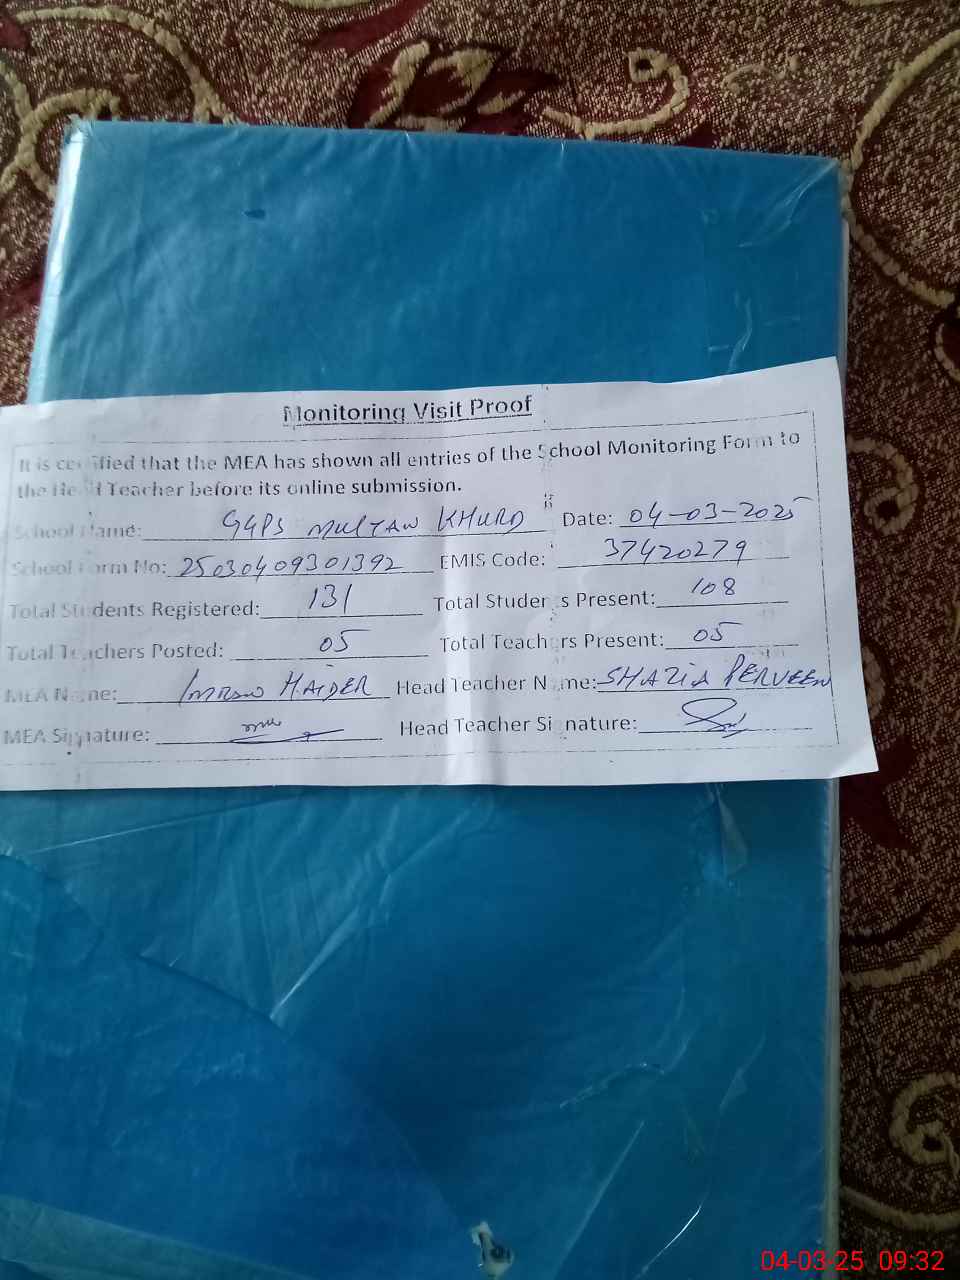 Monitoring Visit Proof
It is certified that the MEA has shown all entries of the School Monitoring Form to
the Head Teacher before its online submission.
School Name: GGPS MULTAN KHURD Date: 04-03-2025
School Form No: 25030409301392 EMIS Code: 37420279
Total Students Registered: 131 Total Students Present: 108
Total Teachers Posted: 05 Total Teachers Present: 05
MEA Name: IMRAN HAIDER Head Teacher Name: SHAZIA PERVEEN
MEA Signature: Head Teacher Signature:
04-03-25 09:32